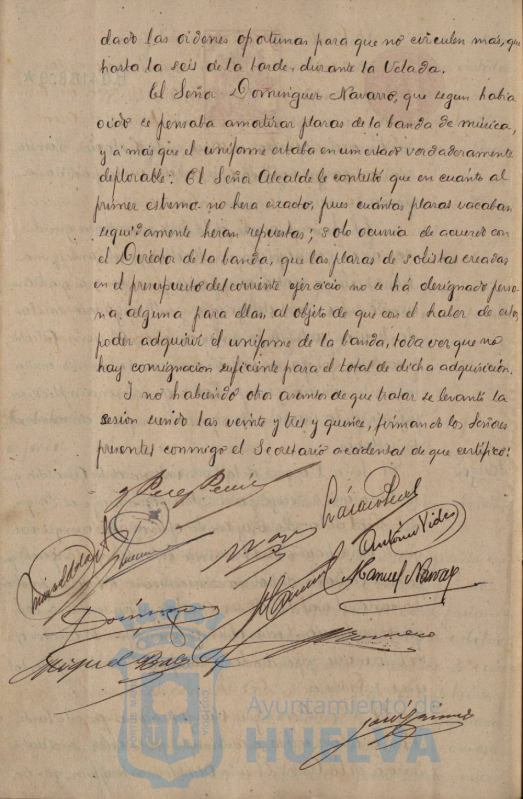 dado las ordenes oportunas para que no circulen más, que
hasta la seis de la tarde, durante la Velada.
El Señor Dominguez Navarro, que segun habia
oido se pensaba amortizar plazas de la banda de música,
y á más que el uniforme estaba en un estado verdaderamente
deplorable: El Señor Alcalde le contestó que en cuánto al
primer estremo no hera exacto, pues cuántas plazas vacaban
seguidamente heran repuestas; solo ocurria de acuerdo con
el Director de la banda, que las plazas de solistas creadas
en el presupuesto del corriente ejercicio no se há designado perso-
na alguna para ellas, al objeto de que con el haber de estos,
poder adquirir el uniforme de la banda, toda vez que no
hay consignacion suficiente para el total de dicha adquisición.
I no habiendo otro asuntos de que tratar se levantó la
sesión siendo las veinte y tres y quince, firmando los Señores
presentes conmigo el Secretario accidental de que certifico:
Antonio Vides
Manuel Navarro
Dominguez
Romero
Miguel
Ayuntamiento de
HUELVA